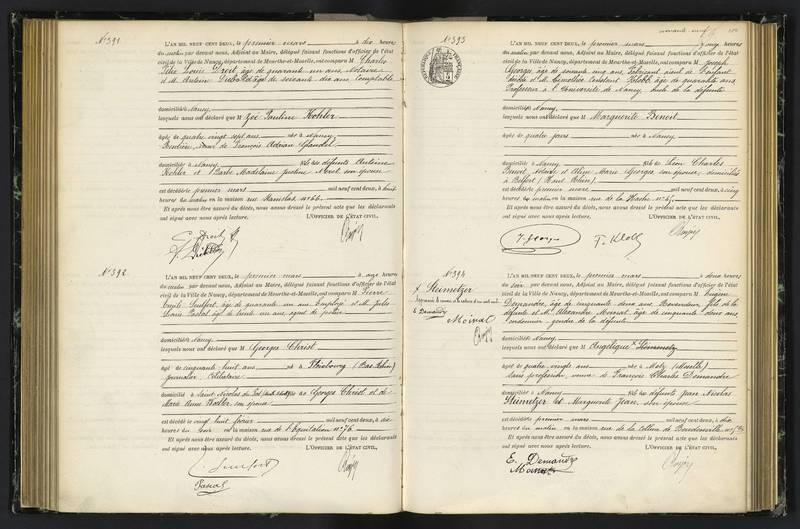 N° 391
L'AN MIL NEUF CENT DEUX, le premier mars à dix heures
du matin par devant nous, Adjoint au Maire, délégué faisant fonctions d'officier de l'état
civil de la Ville de Nancy, département de Meurthe-et-Moselle, ont comparu M Charles
Louis Droit, âgé de quarante un ans, Notaire
et M. Antoine âgé de soixante dix ans Comptable
domiciliés à Nancy
lesquels nous ont déclaré que M Zoé Pauline Kohler
âgée de quatre vingt sept ans née à Nancy
Rentière, veuve de François Adrian
domiciliée à Nancy fille des défunts Antoine
Kohler et Barbe Madelaine Justine son épouse
est décédée premier mars mil neuf cent deux, à
heures du matin en la maison rue Stanislas n° 66
Et après nous être assuré du décès, nous avons dressé le présent acte que les déclarants
ont signé avec nous après lecture. L'OFFICIER DE L'ÉTAT CIVIL,
N° 392
L'AN MIL NEUF CENT DEUX, le premier mars à onze heures
du matin par devant nous, Adjoint au Maire, délégué faisant fonctions d'officier de l'état
civil de la Ville de Nancy, département de Meurthe-et-Moselle, ont comparu M Pierre
Emile âgé de quarante un ans Employé et M. Jules
Louis Pascal âgé de trente un ans agent de police
domiciliés à Nancy
lesquels nous ont déclaré que M Georges Christ
âgé de cinquante huit ans né à Strasbourg (Bas Rhin)
journalier, Célibataire
domicilié à Saint Nicolas du Port fils de Georges Christ et de
Marie Anne son épouse
est décédé le vingt huit février mil neuf cent deux, à dix
heures du soir en la maison rue de l'Equitation n° 76
Et après nous être assuré du décès, nous avons dressé le présent acte que les déclarants
ont signé avec nous après lecture. L'OFFICIER DE L'ÉTAT CIVIL,
Pascal
N° 393
L'AN MIL NEUF CENT DEUX, le premier mars à onze heures
du matin par devant nous, Adjoint au Maire, délégué faisant fonctions d'officier de l'état
civil de la Ville de Nancy, département de Meurthe-et-Moselle, ont comparu M Joseph
Georges, âgé de soixante cinq ans, Fabricant aïeul de l'enfant
âgé de quarante ans
Professeur à l'Université de Nancy, oncle de la défunte
domiciliés à Nancy,
lesquels nous ont déclaré que M Marguerite Benoit
âgée de quatre jours née à Nancy
domiciliée à Nancy fille de Léon Charles
Benoit, Notaire et Aline Marie Georges, son épouse, domiciliés
à Belfort (Haut Rhin)
est décédée premier mars mil neuf cent deux, à cinq
heures du matin en la maison rue de la Hache n°
Et après nous être assuré du décès, nous avons dressé le présent acte que les déclarants
ont signé avec nous après lecture. L'OFFICIER DE L'ÉTAT CIVIL,
J. Georges
N° 394
Steimetzer
E. Demandre
Moinat
L'AN MIL NEUF CENT DEUX, le premier mars à deux heures
du soir par devant nous, Adjoint au Maire, délégué faisant fonctions d'officier de l'état
civil de la Ville de Nancy, département de Meurthe-et-Moselle, ont comparu M Eugène
Demandre, âgé de cinquante deux ans, fils de la
défunte et M. Alexandre Moinat, âgé de cinquante deux ans
gendre de la défunte
domiciliés à Nancy
lesquels nous ont déclaré que M Angélique Steinmetz
âgée de quatre vingts ans née à Metz (Moselle)
sans profession, veuve de François Charles Demandre
domiciliée à Nancy fille des défunts Jean Nicolas
Steimetzer et Marguerite Jean son épouse
est décédée premier mars mil neuf cent deux, à dix
heures du matin en la maison rue de la Colline de Boudonville n°
Et après nous être assuré du décès, nous avons dressé le présent acte que les déclarants
ont signé avec nous après lecture. L'OFFICIER DE L'ÉTAT CIVIL,
E. Demandre
Moinat